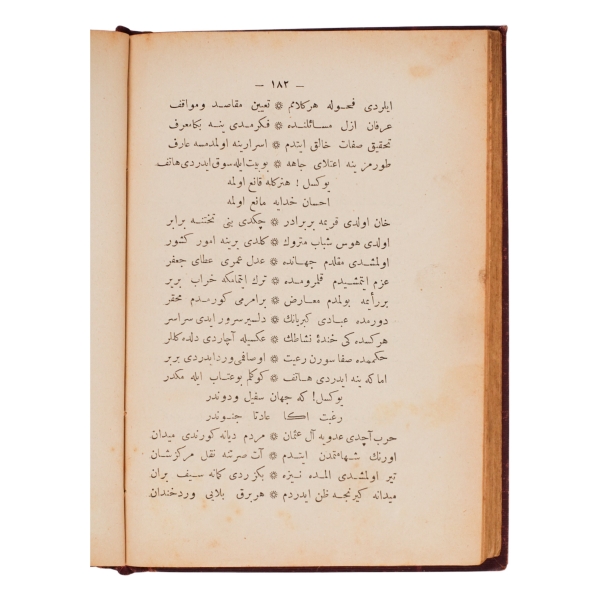 — ١٨٢ —
ایلردی فحوله هرکلامم ❊ تعیین مقاصد ومواقف
عرفان ازل مسائلنده ❊ فکرمدی ینه بکا معرف
تحقیق صفات خالق ایتدم ❊ اسرارینه اولمدمسه عارف
طورمز ینه اعتلای جاهه ❊ بوبیت ایله سوق ایدردی هاتف
یوکسل ! هنرکله قانع اولمه
احسان خدایه مانع اولمه
خان اولدی قریمه بر برادر ❊ چکدی بنی تختنه برابر
اولدی هوس شباب متروك ❊ کلدی یرینه امور کشور
اولمشدی مقلدم جهانده ❊ عدل عمری عطای جعفر
عزم ایتمشیدم قلمرومده ❊ ترك ایتمامکه خراب بر یر
بررأیمه بولمدم معارض ❊ برامرمی کورمدم محقر
دورمده عبادی کبریانك ❊ دلسیر سرور ایدی سراسر
هرکسده کی خندۀ نشاطك ❊ عکسیله آچاردی دلده کللر
حکممده صفا سورن رعیت ❊ اوصافمی ورد ایدردی بربر
اما که ینه ایدردی هاتف ❊ کوکلم بوعتاب ایله مکدر
یوکسل! که جهان سفیل ودوندر
رغبت اکا عادتا جنوندر
حرب آچدی عدویه آل عثمان ❊ مردم دیانه کورندی میدان
اورنك شهامتمدن ایتدم ❊ آت صرتنه نقل مرکز شان
تیر اولمشدی المده نیزه ❊ بکزردی کمانه سیف بران
میدانه کیرنجه ظن ایدردم ❊ هربرق بلایی ورد خندان